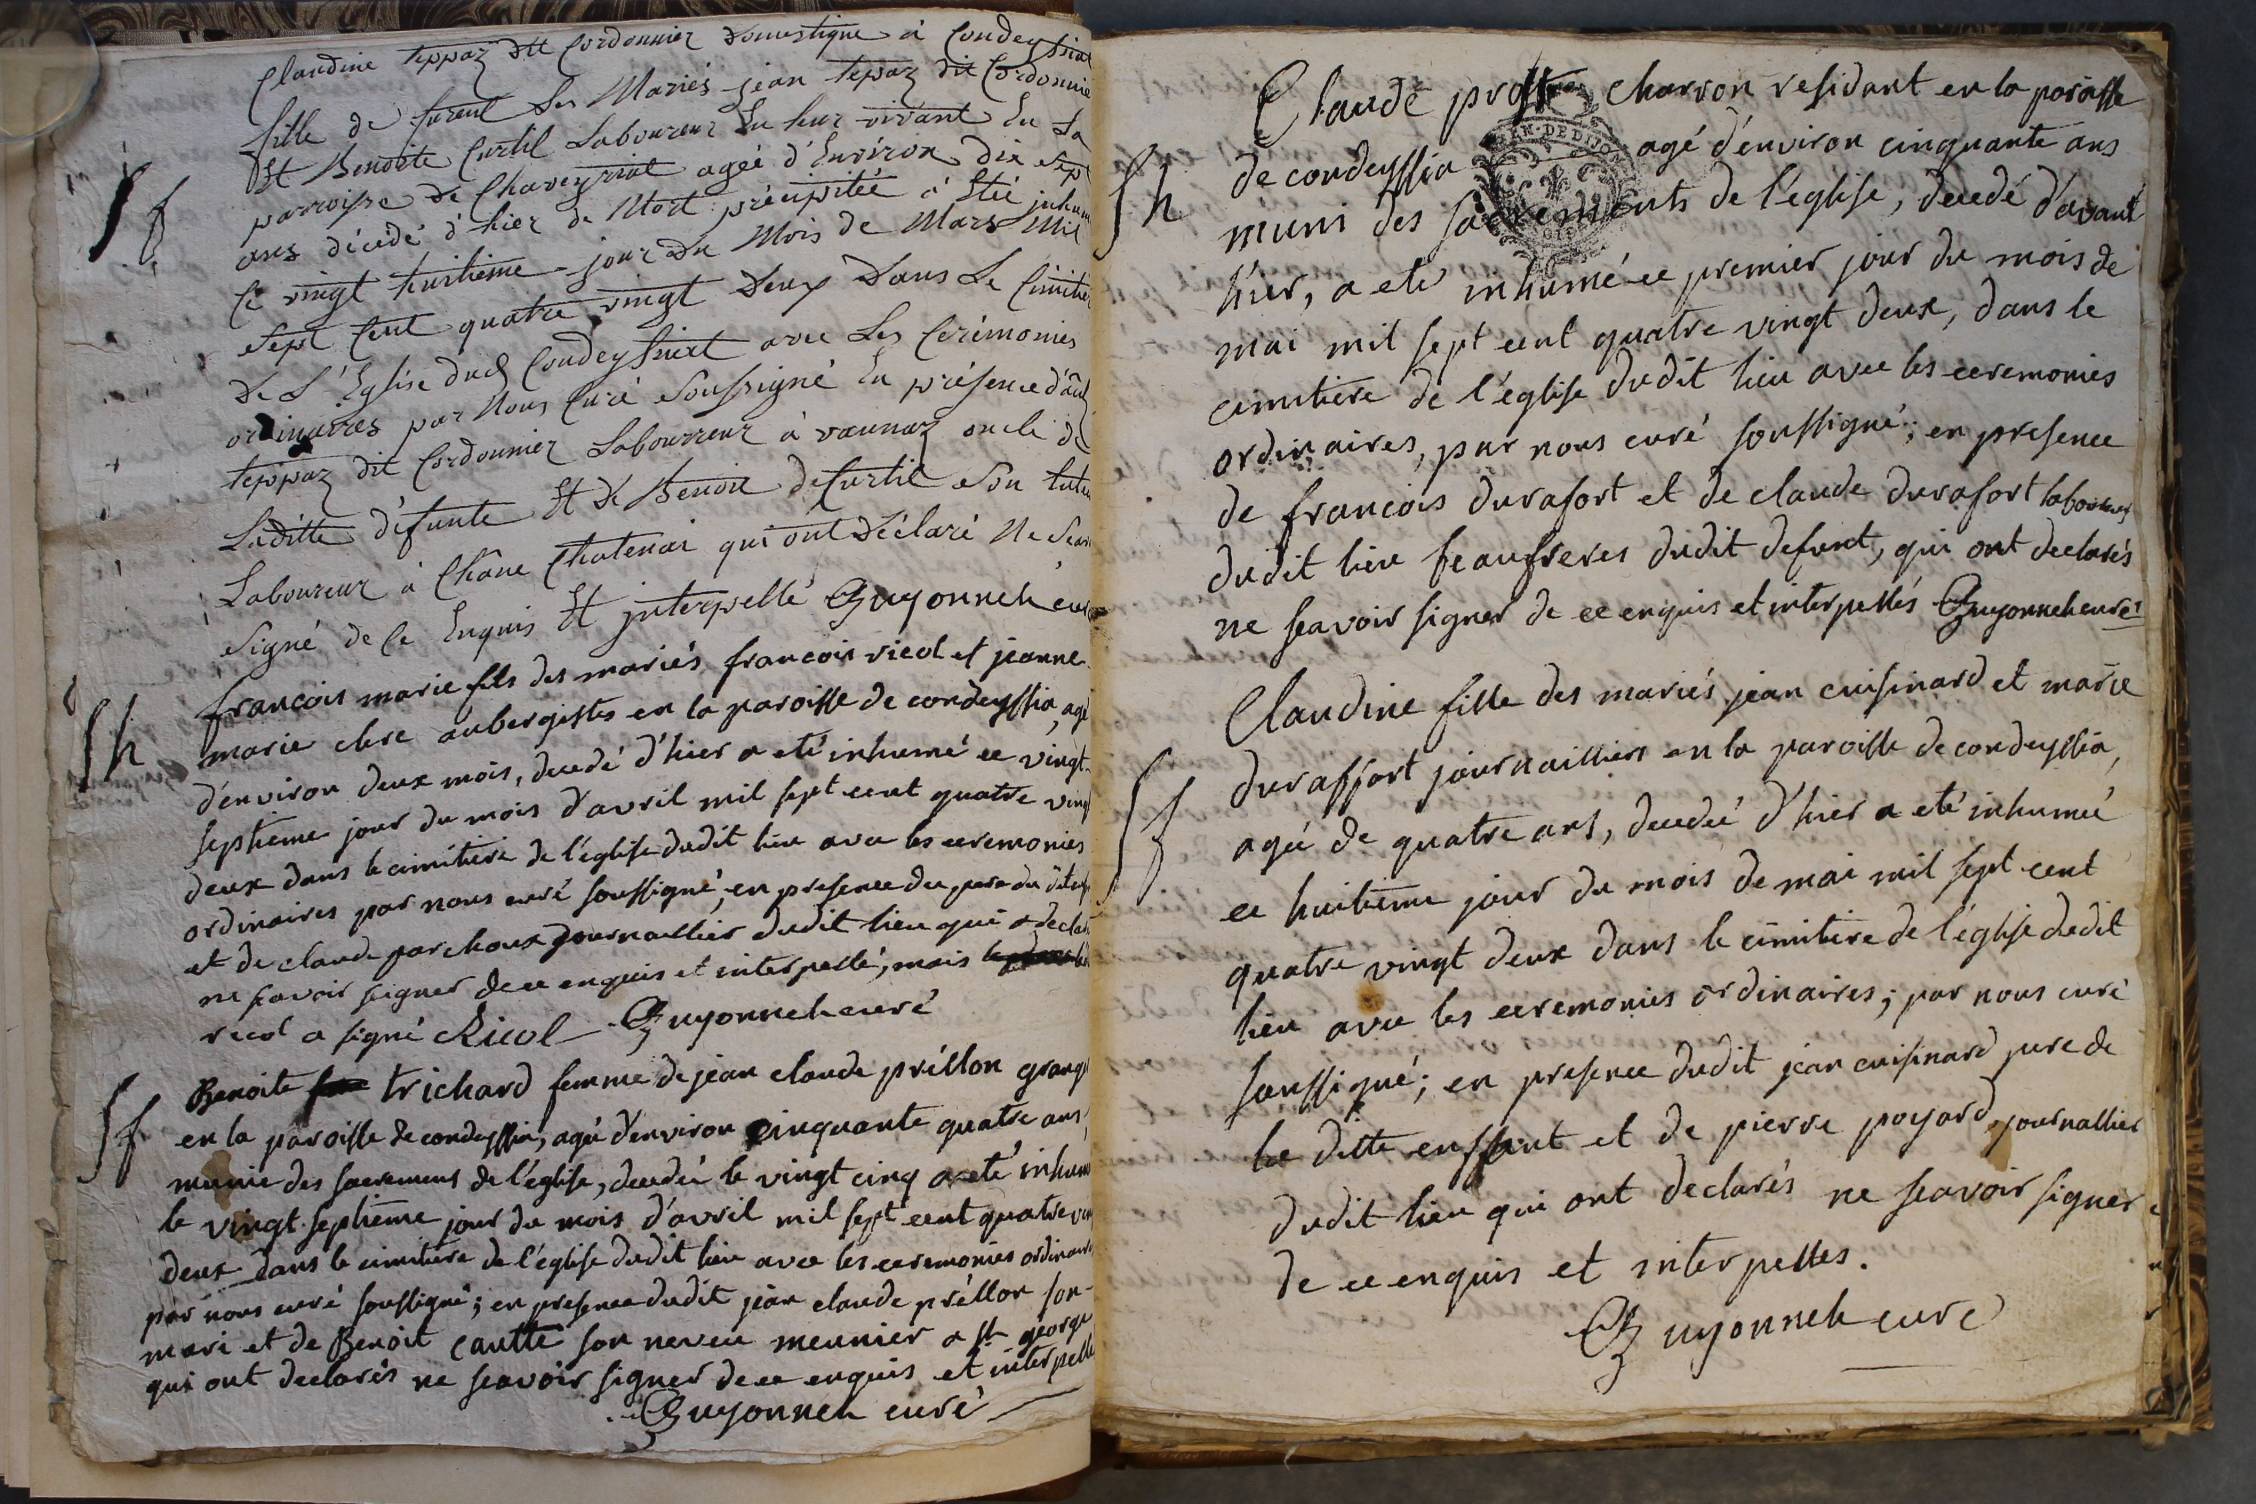 Claudine teppaz dit Cordonnier domestique à Condeyssiat
fille de furent Les Mariés jean tepaz dit Cordonnie
Et Benoite Curtil Laboureur En leur vivant En La
parroisse de Chaveyriat agée d'Environ dix sept
ans décédé d'hier de Mort précipitée à Eté inhum
Sf
Ce vingt huitième jour du Mois de Mars Mil
Sept Cent quatre vingt Deux Dans Le Cimitier
De L'Eglise dud Condeyssiat avec Les Cérémonies
ordinaires par Nous Curé soussigné En présence d'
teppaz dit Cordonnier Labourreur à vaunaz oncle de
Laditte défunte Et de Benoit deCurtil son tuteu
Laboureur à Châne Chatenai qui ont Déclaré Ne Scav
Signé de Ce Enquis Et interpellé Guyonneh curé
françois marie fils des mariés francois ricol et jeanne
Sh
marie clere aubergistes en la paroisse de condeyssia, agé
d'environ deux mois, decedé d'hier a eté inhumé ce vingt
septieme jour du mois d'avril mil sept cent quatre ving
deux dans le cimitiere de l'église dudit lieu avec les ceremonies
ordinaires par nous curé soussigné, en presence du pere du dit
et de claude parchoux journallier dudit lieu qui a declaré
ne scavoir signer de ce enquis et interpellé, mais
ricol a signé Ricol Guyonneh curé
Benoite trichard femme de jean claude préllon grang
Sf
en la paroisse de condeyssia, agée d'environ cinquante quatre ans,
munie des sacremens de l'église, decedée le vingt cinq a eté inhum
le vingt septieme jour du mois d'avril mil sept cent quatre vin
deux dans le cimitiere de l'église dudit lieu avec les ceremonies ordinaires
par nous curé soussigné; en presence dudit jean claude préllon son
mari et de Benoit Cautte son neveu meunier a st george
qui ont declarés ne scavoir signer de ce enquis et interpellé
Guyonneh curé
Claude charron residant en la paroisse
Sh
de condeyssia agé d'environ cinquante ans
muni des sacrements de l'église, decedé d'avant
hier, a eté inhumé ce premier jour du mois de
mai mil sept cent quatre vingt deux, dans le
cimitiere de l'église dudit lieu avec les ceremonies
ordinaires, par nous curé soussigné; en presence
de francois durafort et de claude durafort laboureurs
dudit lieu beaufreres dudit defunt, qui ont declarés
ne scavoir signer de ce enquis et interpellés Guyonneh curé
Claudine fille des mariés jean cuisinard et marie
duraffort journailliers en la paroisse de condeyssia,
Sf
agée de quatre ans, decedée d'hier a eté inhumée
ce huitieme jour du mois de mai mil sept cent
quatre vingt deux dans le cimitiere de l'église dudit
lieu avec les ceremonies ordinaires; par nous curé
soussigné; en presence dudit jean cuisinard pere de
la ditte enffant et de pierre poyard, journallier
dudit lieu qui ont declarés ne scavoir signer
de ce enquis et interpellés.
Guyonneh curé